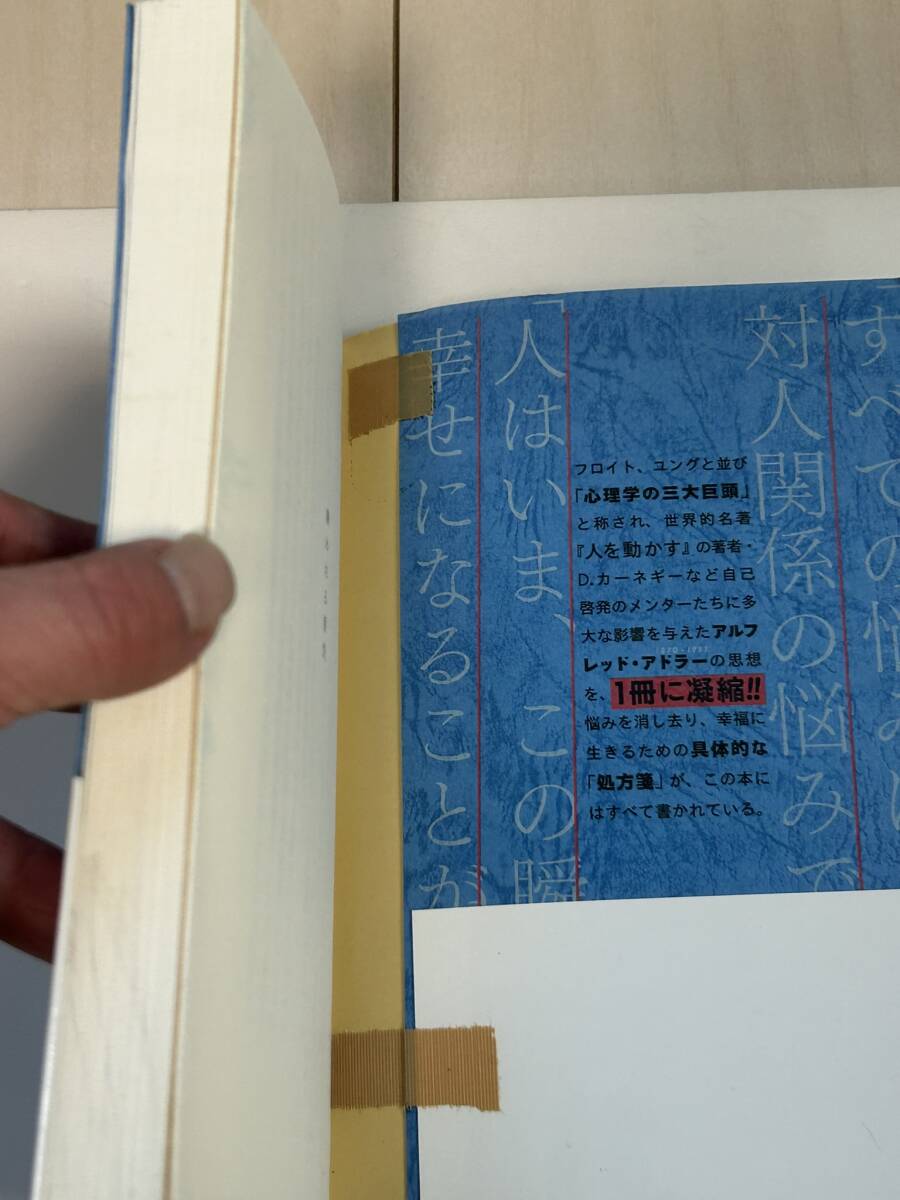 すべての悩みは
対人関係の悩みで
「人はいま、この瞬
幸せになることが
フロイト、ユングと並び
「心理学の三大巨頭」
と称され、世界的名著
『人を動かす』の著者・
D.カーネギーなど自己
啓発のメンターたちに多
大な影響を与えたアルフ
レッド・アドラーの思想
を、1冊に凝縮!!
悩みを消し去り、幸福に
生きるための具体的な
「処方箋」が、この本に
はすべて書かれている。